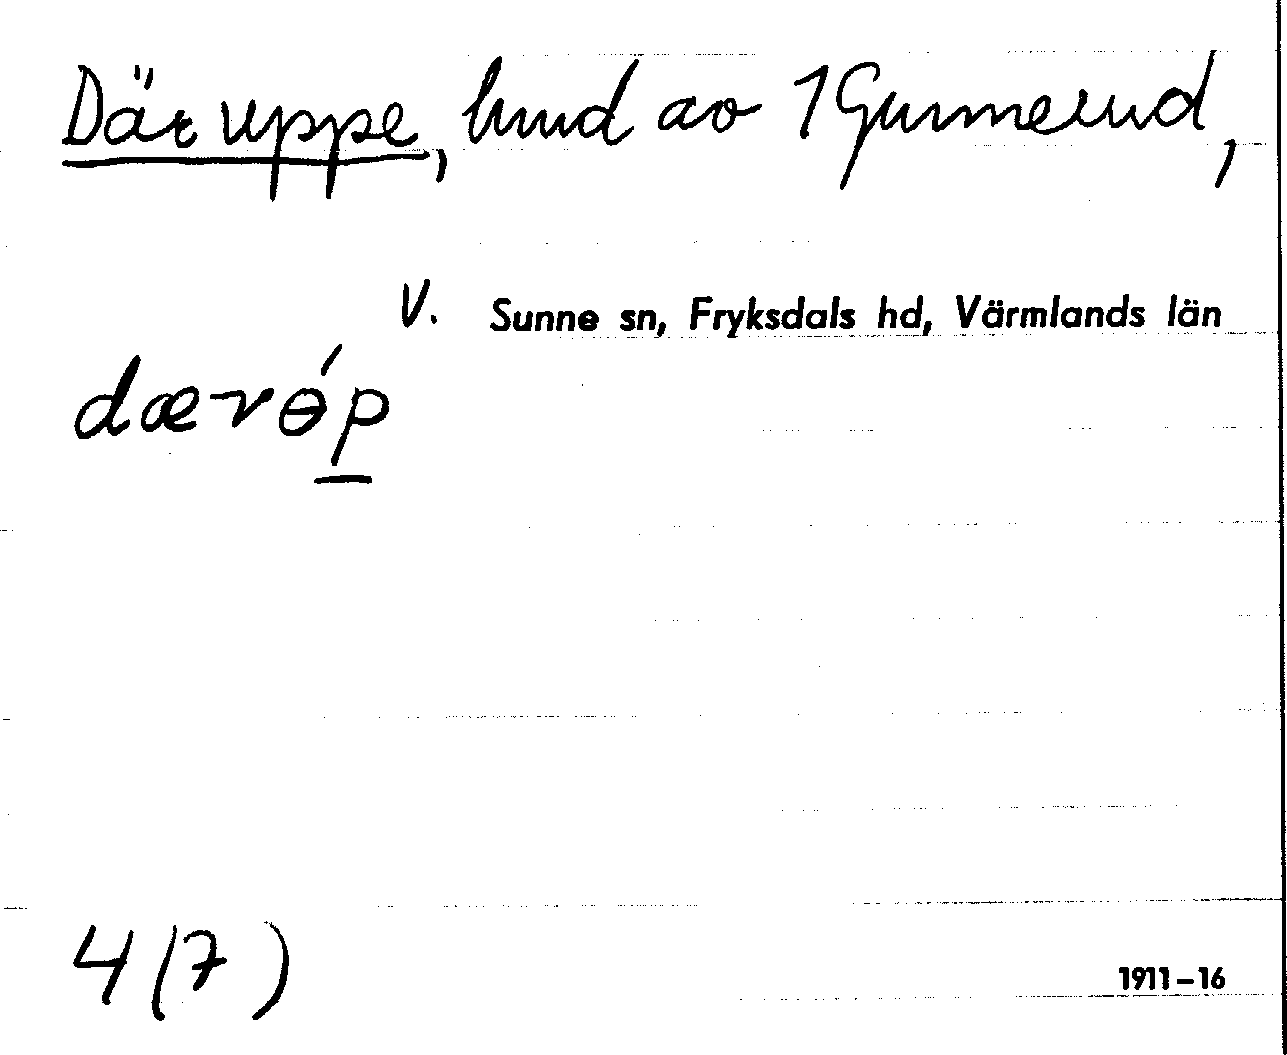 Där uppe, hmd av 1 Gunnerud,
V. Sunne sn, Fryksdals hd, Värmlands län
dærǿp
4 (7)
1911–16